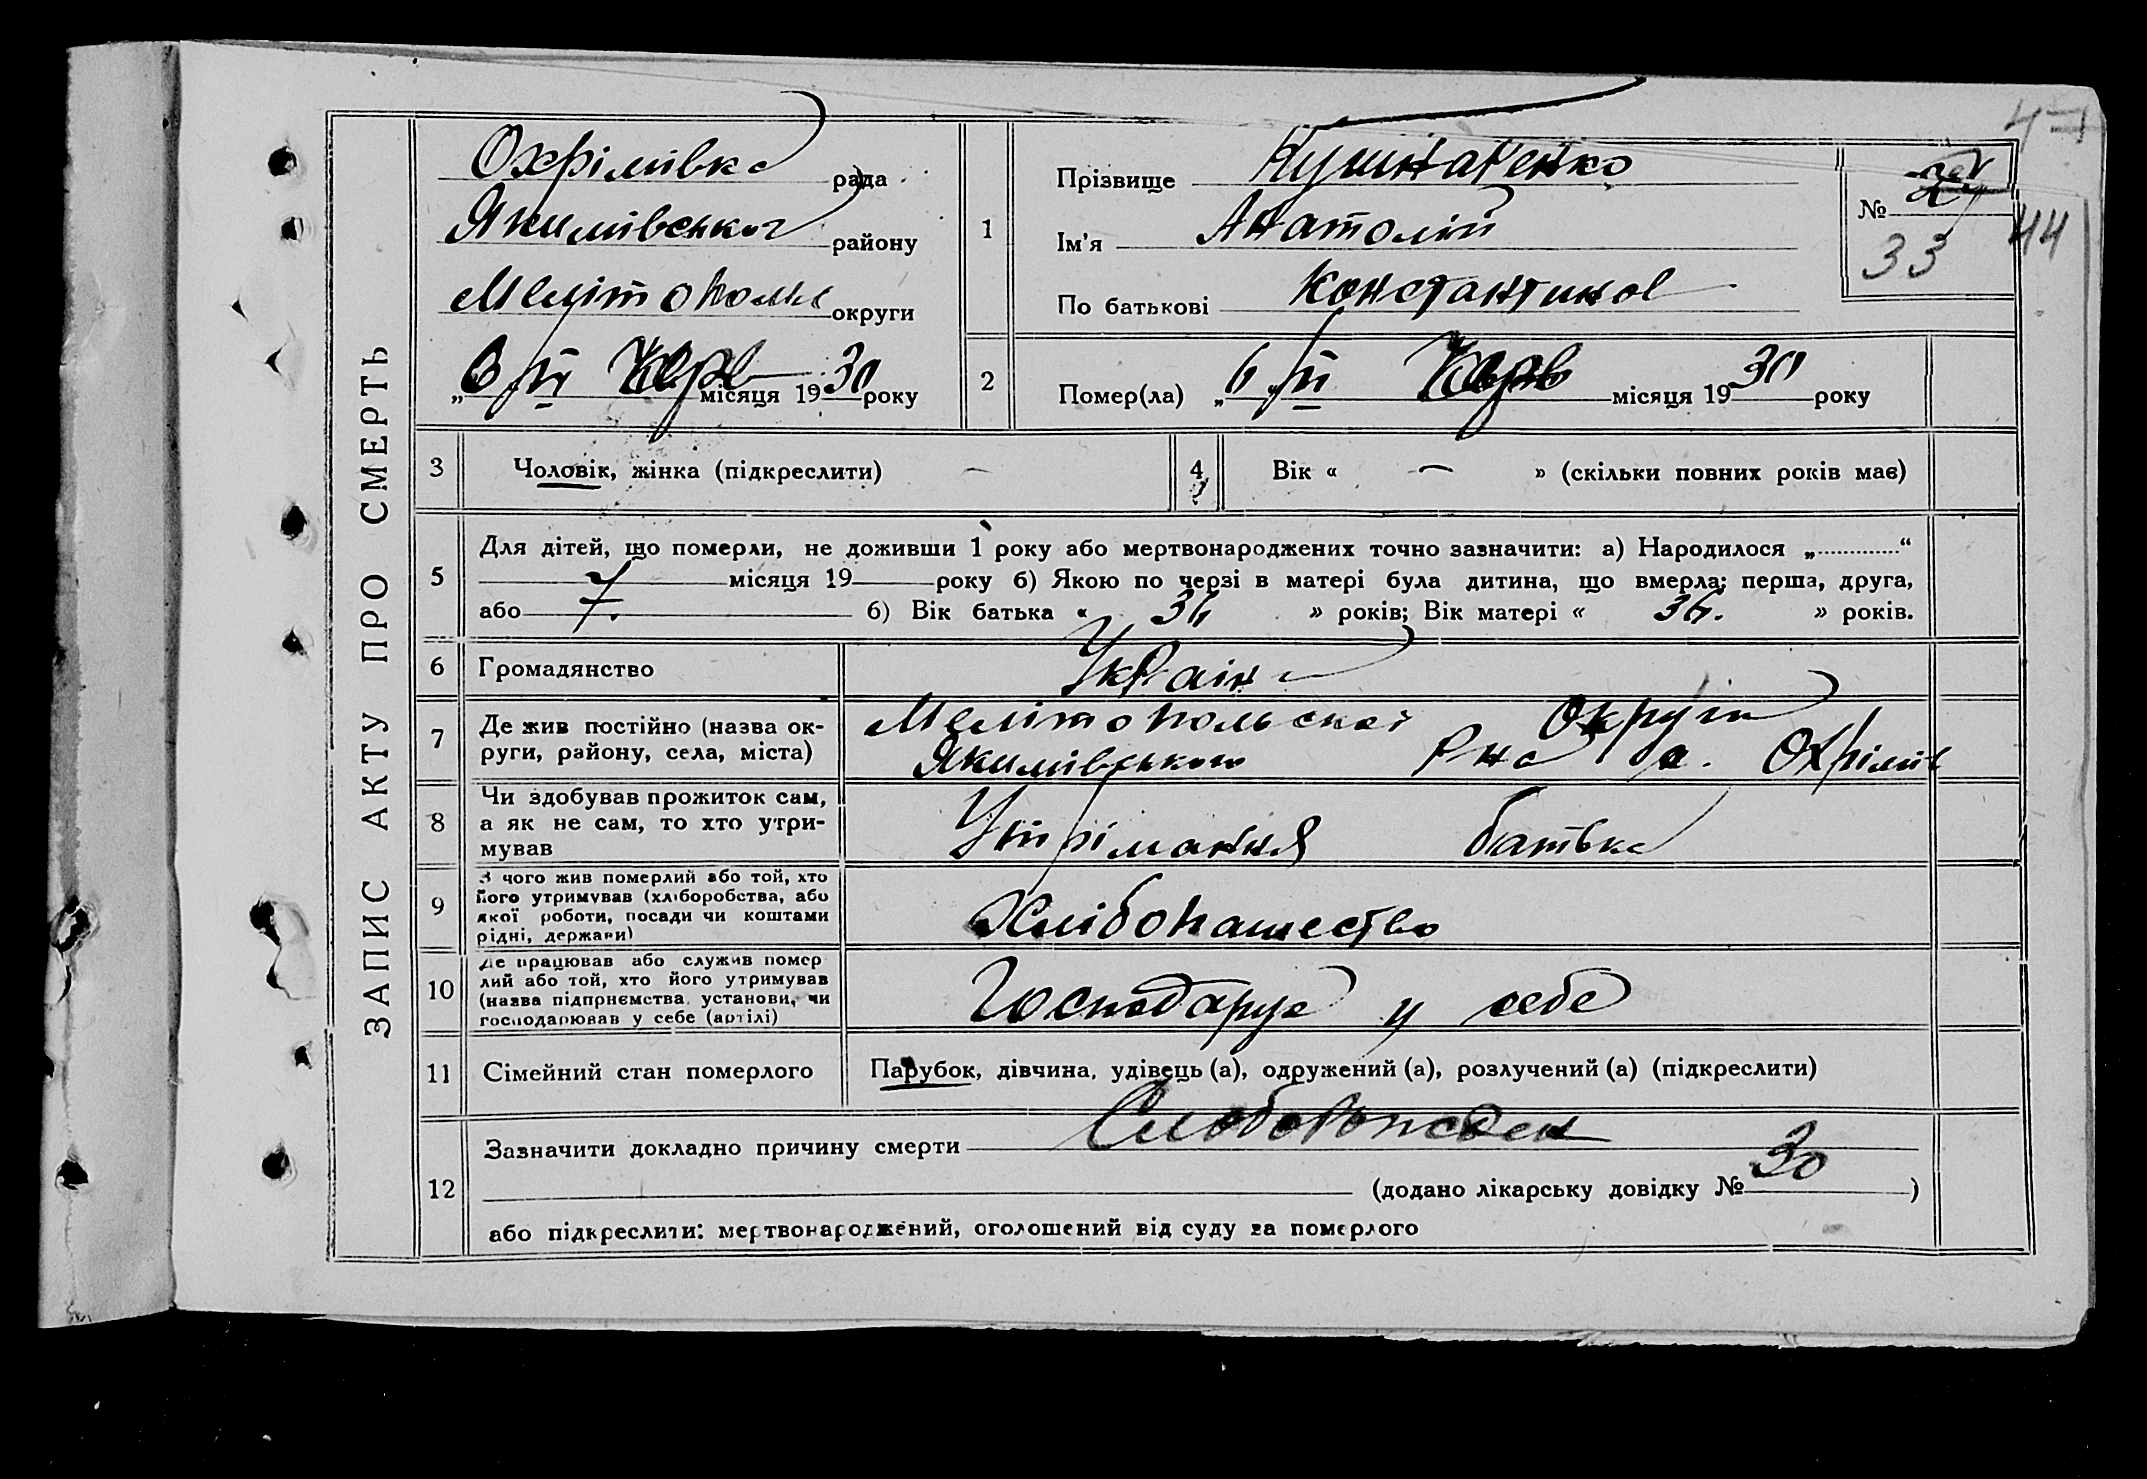 ЗАПИС АКТУ ПРО СМЕРТЬ
Охрімівка рада
Якимівського району
Мелітополь округи
„ 6/VI місяця 1930 року
1
Прізвище Кушнаренко
Ім'я Анатолій
По батькові Константинов
№
33
44
47
2
Помер(ла) „ 6/VI місяця 1930 року
3 Чоловік, жінка (підкреслити) —
4 Вік « — » (скільки повних років має)
5
Для дітей, що померли, не доживши 1 року або мертвонароджених точно зазначити: а) Народилося „ “
місяця 19 року б) Якою по черзі в матері була дитина, що вмерла: перша, друга,
або 7. б) Вік батька « 36 » років; Вік матері « 36. » років.
6 Громадянство Україн
7
Де жив постійно (назва ок-
руги, району, села, міста)
Мелітопольскоі Округи
Якимівського Рна с. Охрімів
8
Чи здобував прожиток сам,
а як не сам, то хто утри-
мував
Утрімання батька
9
З чого жив померлий або той, хто
його утримував (хліборобства, або
якої роботи, посади чи коштами
рідні, держави)
Хлібопашество
10
Де працював або служив помер
лий або той, хто його утримував
(назва підприємства, установи, чи
господарював у себе (артілі)
Господарує у себе
11 Сімейний стан померлого
Парубок, дівчина, удівець (а), одружений (а), розлучений (а) (підкреслити)
12
Зазначити докладно причину смерти Слаборожден
(додано лікарську довідку № 30 )
або підкреслити: мертвонароджений, оголошений від суду за померлого